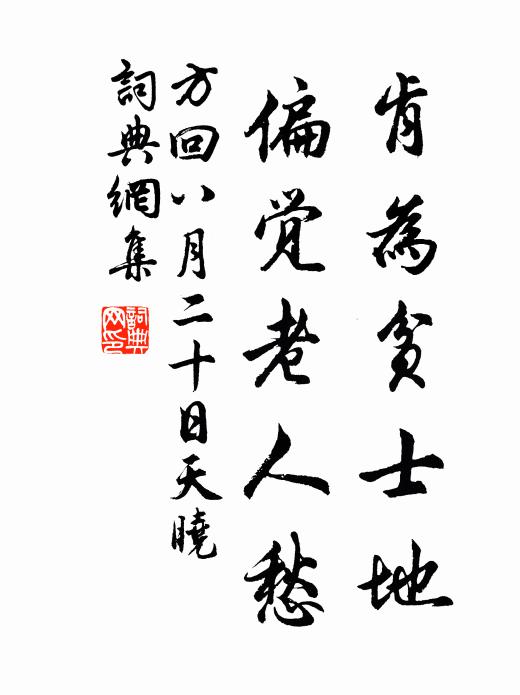 肯為貧士地
偏觉老人愁
方回八月二十日天曉
詞典網集
詞典网印